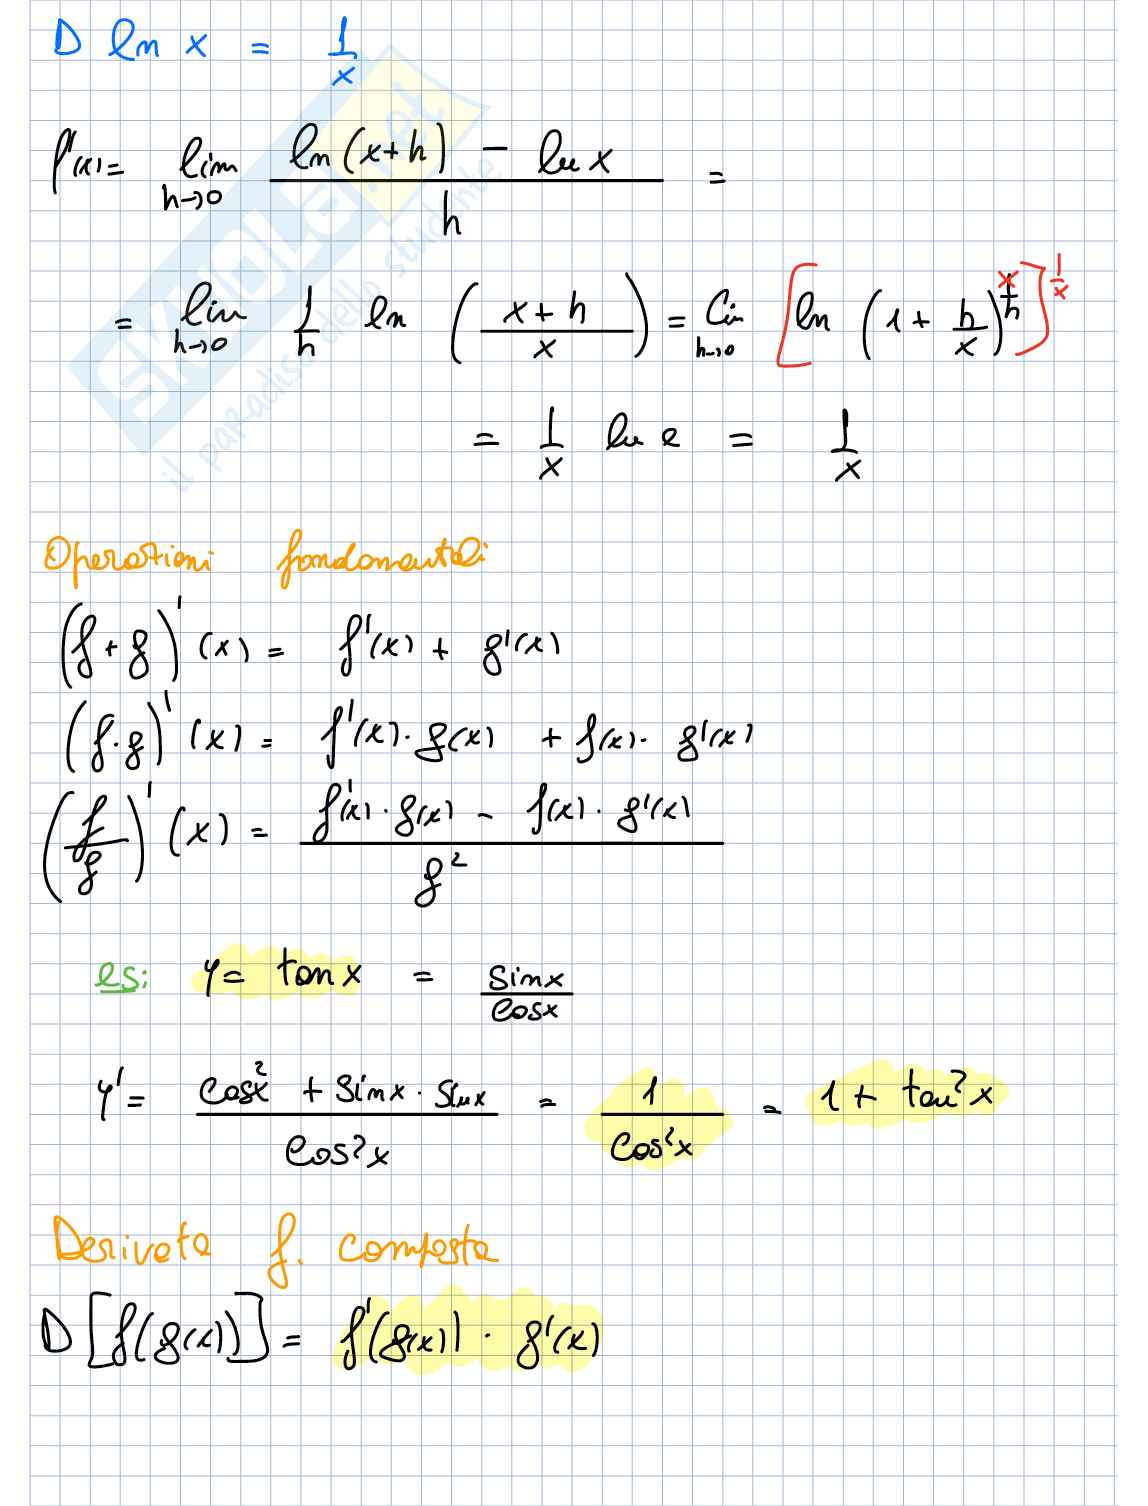 D ln x = 1/x
f'(x) = lim h→0 (ln(x+h) - ln x)/h =
= lim h→0 1/h ln ((x+h)/x) = lim h→0 [ln (1 + h/x)^(x/h)]^(1/x)
= 1/x ln e = 1/x
Operazioni fondamentali
(f + g)' (x) = f'(x) + g'(x)
(f·g)' (x) = f'(x)·g(x) + f(x)· g'(x)
(f/g)' (x) = (f'(x)·g(x) - f(x)·g'(x))/g²
es: y = tan x = sin x/cos x
y' = (cos²x + sin x · sin x)/cos²x = 1/cos²x = 1 + tan²x
Derivata f. composta
D[f(g(x))] = f'(g(x)) · g'(x)
SKUOLA.net
il paradiso dello studente